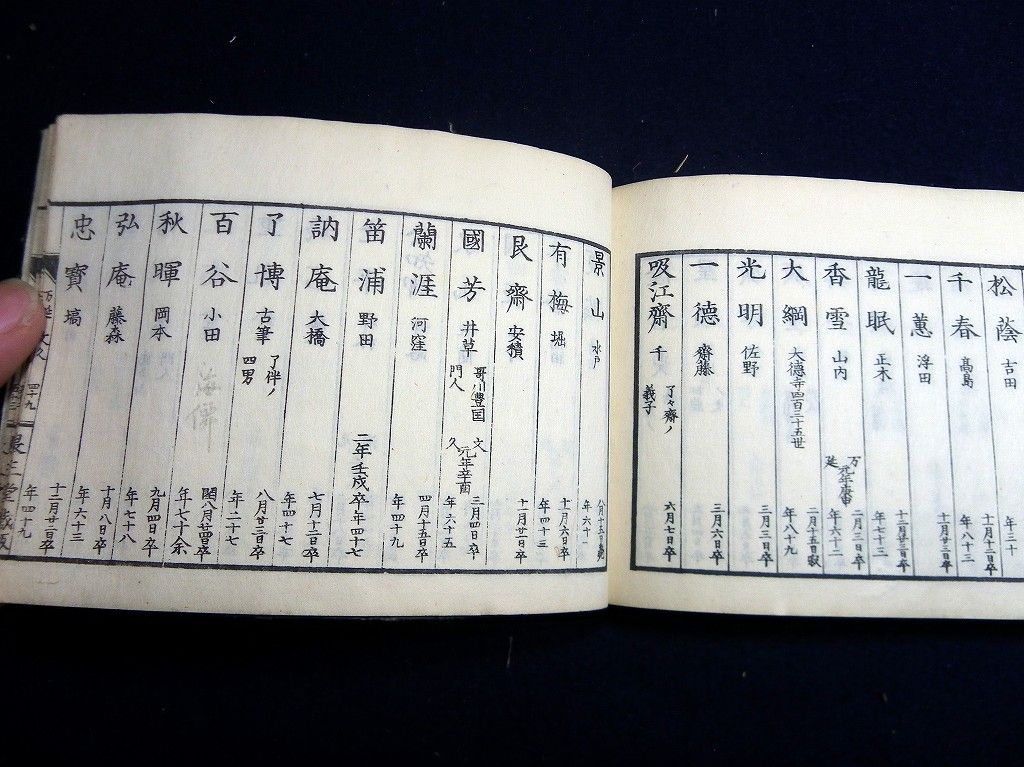 松蔭 吉田 年三十
千春 高島 十一月十二日卒 年八十三
一蕙 浮田 十一月廿三日卒
龍眠 正木 十二月廿三日卒 年七十三
香雪 山内 万延元年庚申 二月三日卒 年六十二
大綱 大徳寺四百三十五世 二月十五日寂 年八十九
光明 佐野 三月三日卒
一徳 齋藤 三月六日卒
吸江齋 千 了々齋ノ義子 六月七日卒
景山 水戸 年六十一
有梅 堀田 十一月六日卒 年四十三
艮齋 安積 十一月廿一日卒
國芳 井草 哥川豊国門人 文久元年辛酉 三月四日卒 年六十五
蘭涯 河窪 四月十五日卒 年四十九
笛浦 野田 二年壬戌卒年四十七
訥庵 大橋 七月十二日卒 年四十七
了博 古筆 了伴ノ四男 八月廿二日卒 年二十七
百谷 小田 閏八月廿四日卒 年七十余
秋暉 岡本 九月四日卒 年七十八
弘庵 藤森 十月八日卒 年六十三
忠寳 塙 十二月廿二日卒 年四十九